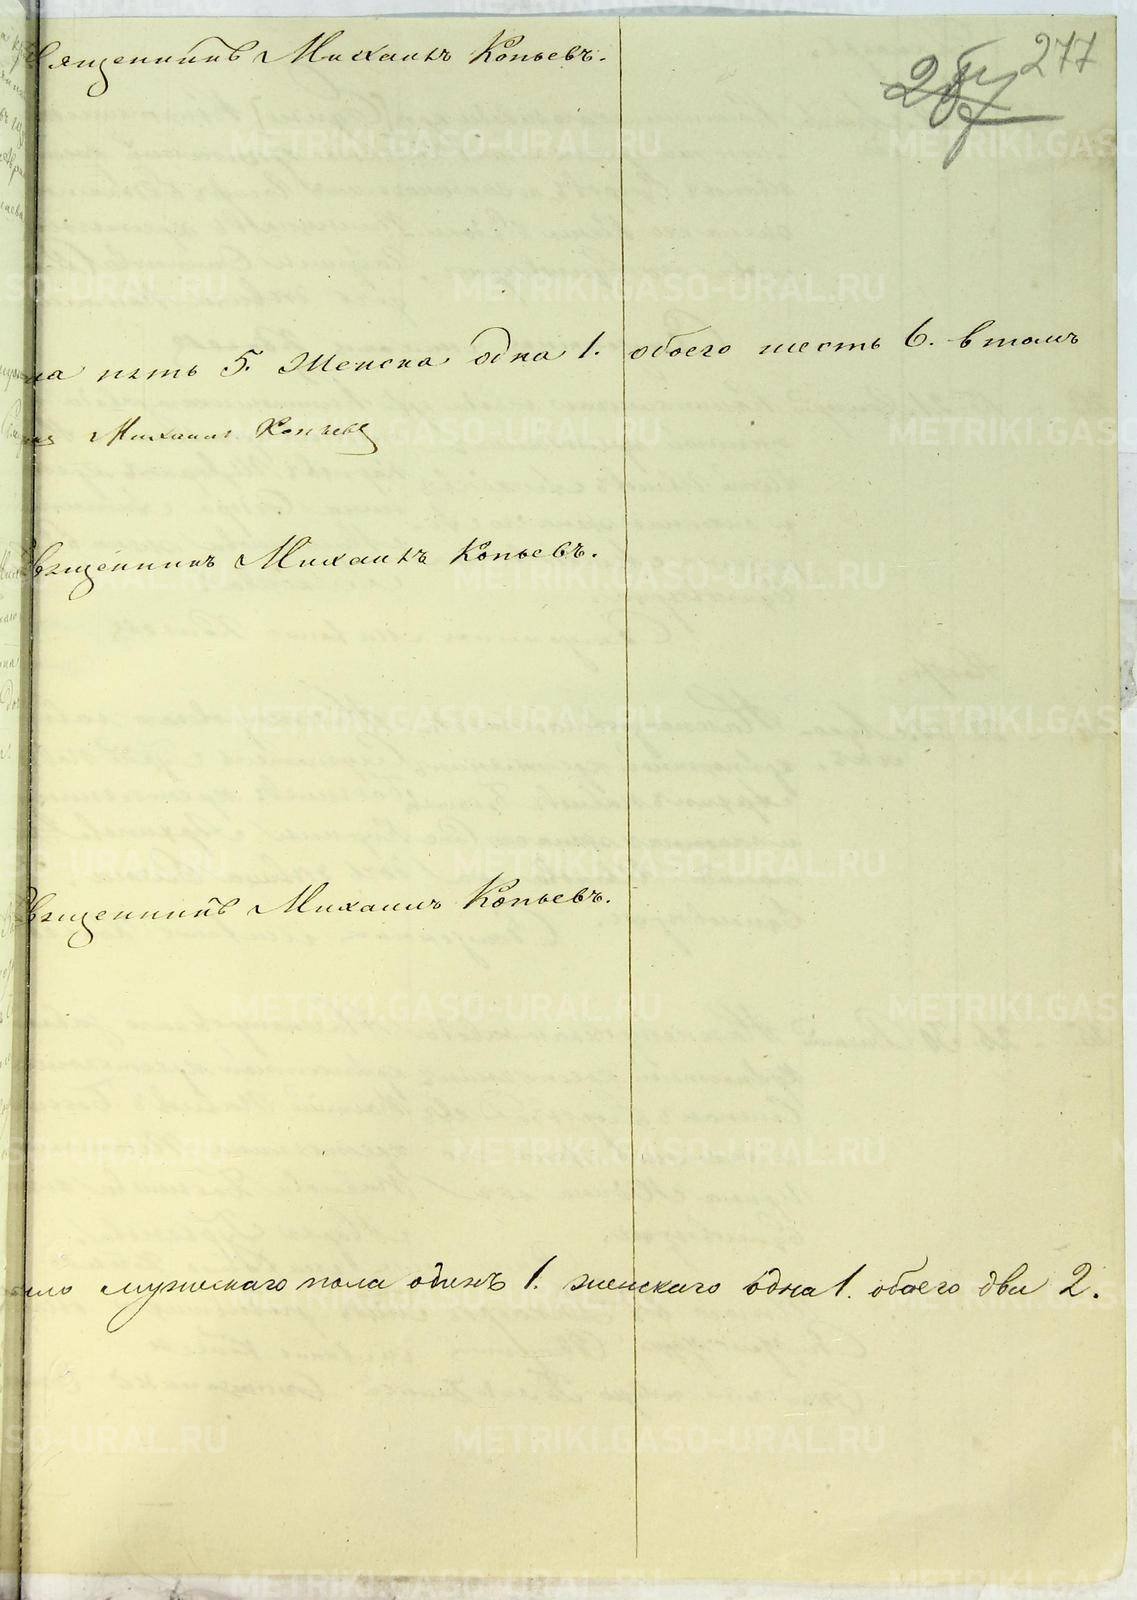 Священникъ Михаилъ Копьевъ.
277
на пять 5. Женска одна 1. обоего шесть 6. втомъ
Михаилъ Копьевъ
Священникъ Михаилъ Копьевъ.
Священникъ Михаилъ Копьевъ.
мужескаго пола одинъ 1. женскаго одна 1. обоего два 2.